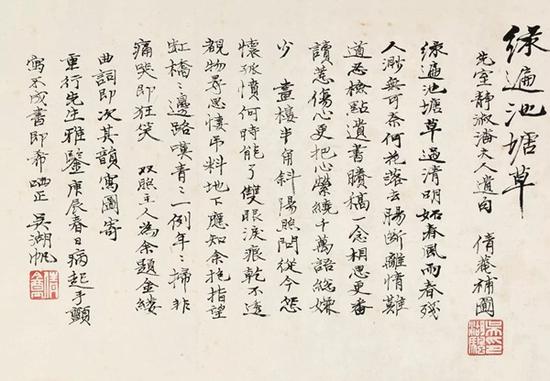 綠遍池塘草
先室靜淑潘夫人遺句 倩菴補圖
綠遍池塘草過清明妬春風雨春殘
人渺無可奈何花落去腸斷離情難
道忍檢點遺書賸稿一念相思更番
讀惹傷心更把心縈繞千萬語總嫌
少 畫樓半角斜陽照閉從今怨
懷孤憤何時能了雙眼淚痕乾不透
覩物思悽弔料地下應知余抱指望
虹橋〻邊路嘆青〻一例年〻掃非
痛哭即狂笑 双照主人為余題金縷
曲詞即次其韻寫圖寄
重行先生雅鑒庚辰春日病起手顫
寫不成書即希哂正 吳湖帆